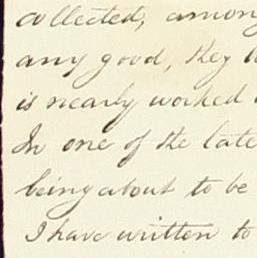 collected, among
any good, they
is nearly worked
In one of the late
being about to be
I have written to